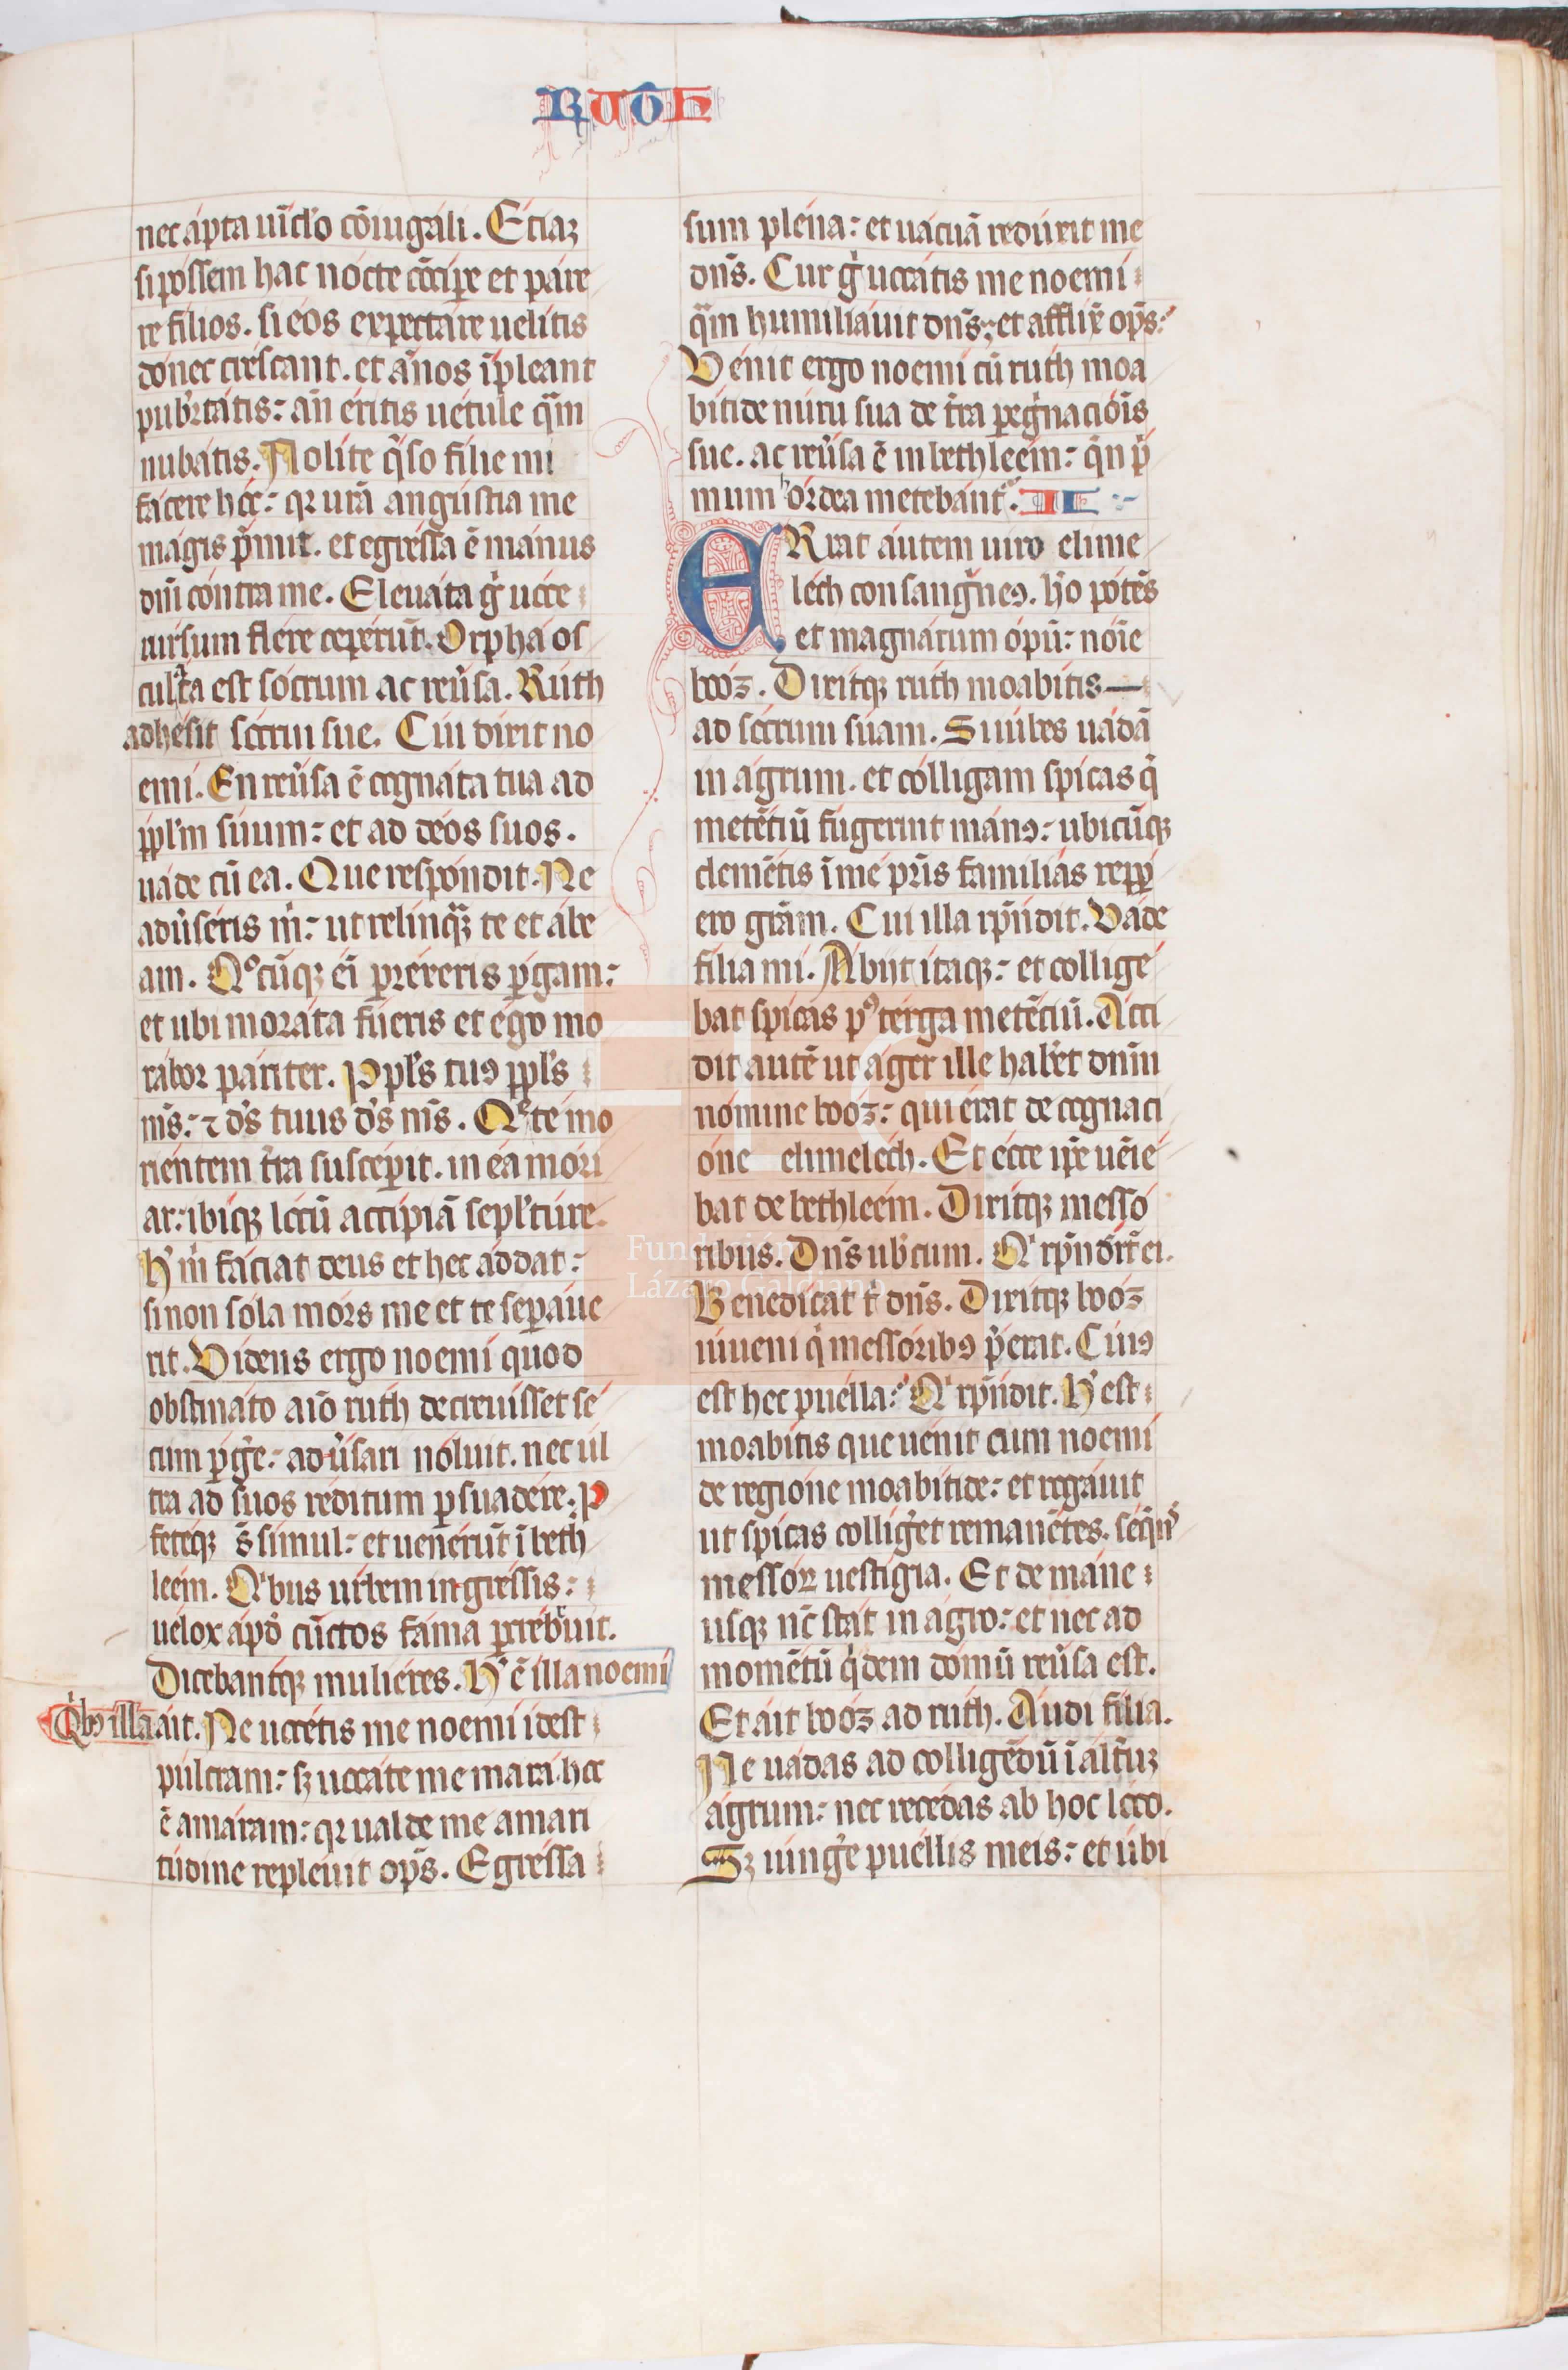 RUTH
nec apta uīclo cōiugali. Etiaꝫ
si possem hac nocte cōcipe et pare
re filios. si eos expectare uelitis
donec crescant. et ānos īpleant
pubꝛtatis: an̄ eritis uetule q̄m
nubatis. Nolite q̄so filie mi
facere hoc: qꝛ urā angustia me
magis p̄mit. et egressa ē manus
dn̄i contra me. Eleuata ḡ uoce
rursum flere ceperūt. Orpha os
culata est socrum ac reūsa. Ruth
adhesit socrui sue. Cui dixit no
emi. En reūsa ē cognata tua ad
ppl'm suum: et ad deos suos.
uade cū ea. Que respondit. Ne
adūseris m̄: ut relinq̄ꝫ te et abe
am. Qºcūqꝫ ei prexeris ꝑgam:
et ubi morata fueris et ego mo
rabor pariter. Ppl's tuꝰ ppl's
ms̄: ⁊ ds̄ tuus ds̄ ms̄. Qͤ te mo
rientem t̄ra susceperit. in ea mori
ar: ibiqꝫ locū accipiā sepl'ture.
H' m̄ faciat deus et hec addat:
si non sola mors me et te separaue
rit. Videns ergo noemi quod
obstinato aīo ruth decreuisset se
cum ꝑge: adūsari noluit. nec ul
tra ad suos reditum ꝑsuadere. P
fecteqꝫ s̄ simul: et uenerūt ī beth
leem. Qⁱbus urbem ingressis:
uelox apd̄ cūctos fama ꝑcrebruit.
Dicebantqꝫ mulieres. H' ē illa noemi
Qⁱbꝰ illa ait. Ne uocetis me noemi idest
pulcram: sꝫ uocate me mara. hoc
ē amaram: qꝛ ualde me amari
tudine repleuit op̄s. Egressa
sum plena: et uacuā reduxit me
dn̄s. Cur ḡ uocatis me noemi
q̄m humiliauit dn̄s: et afflix̄ op̄s:
Venit ergo noemi cū ruth moa
bitide nuru sua de t̄ra pegⁱnaciōis
sue. ac reūsa ē in bethleem: qn̄ pⁱ
mum hordea metebant̄. II
ERat autem uiro elime
lech consangⁱneꝰ. hō potēs
et magnarum opū: noīe
booꝫ. Dixitqꝫ ruth moabitis
ad socrum suam. Si iubes uadā
in agrum. et colligam spicas qⁱ
metētiū fugerint manꝰ: ubicūqꝫ
clemētis ī me pr̄is familias repp
ero grām. Cui illa rn̄dit. Vade
filia mi. Abiit itaqꝫ: et collige
bat spicas pꝰ terga metētiū. Acci
dit autē ut ager ille haberet dn̄m
nomine booꝫ: qui erat de cognaci
one elimelech. Et ecce ip̄e ueie
bat de bethleem. Dixitqꝫ messo
ribus. Dn̄s ubcum. Qⁱ rn̄dert̄ ei.
Benedicat tⁱ dn̄s. Dixitqꝫ booꝫ
iuueni qⁱ messoribꝰ p̄erat. Cuiꝰ
est hec puella: Qⁱ rn̄dit. H' est
moabitis que uenit cum noemi
de regione moabitide: et rogauit
ut spicas colligeret remanētes. seqⁿs
messoꝝ uestigia. Et de mane
usqꝫ nc̄ stat in agro: et nec ad
momētū qⁱdem domū reūsa est.
Et ait booꝫ ad ruth. Audi filia.
Ne uadas ad colligēdū ī alt̄uꝫ
agrum: nec recedas ab hoc loco.
Sꝫ iungē puellis meis: et ubi